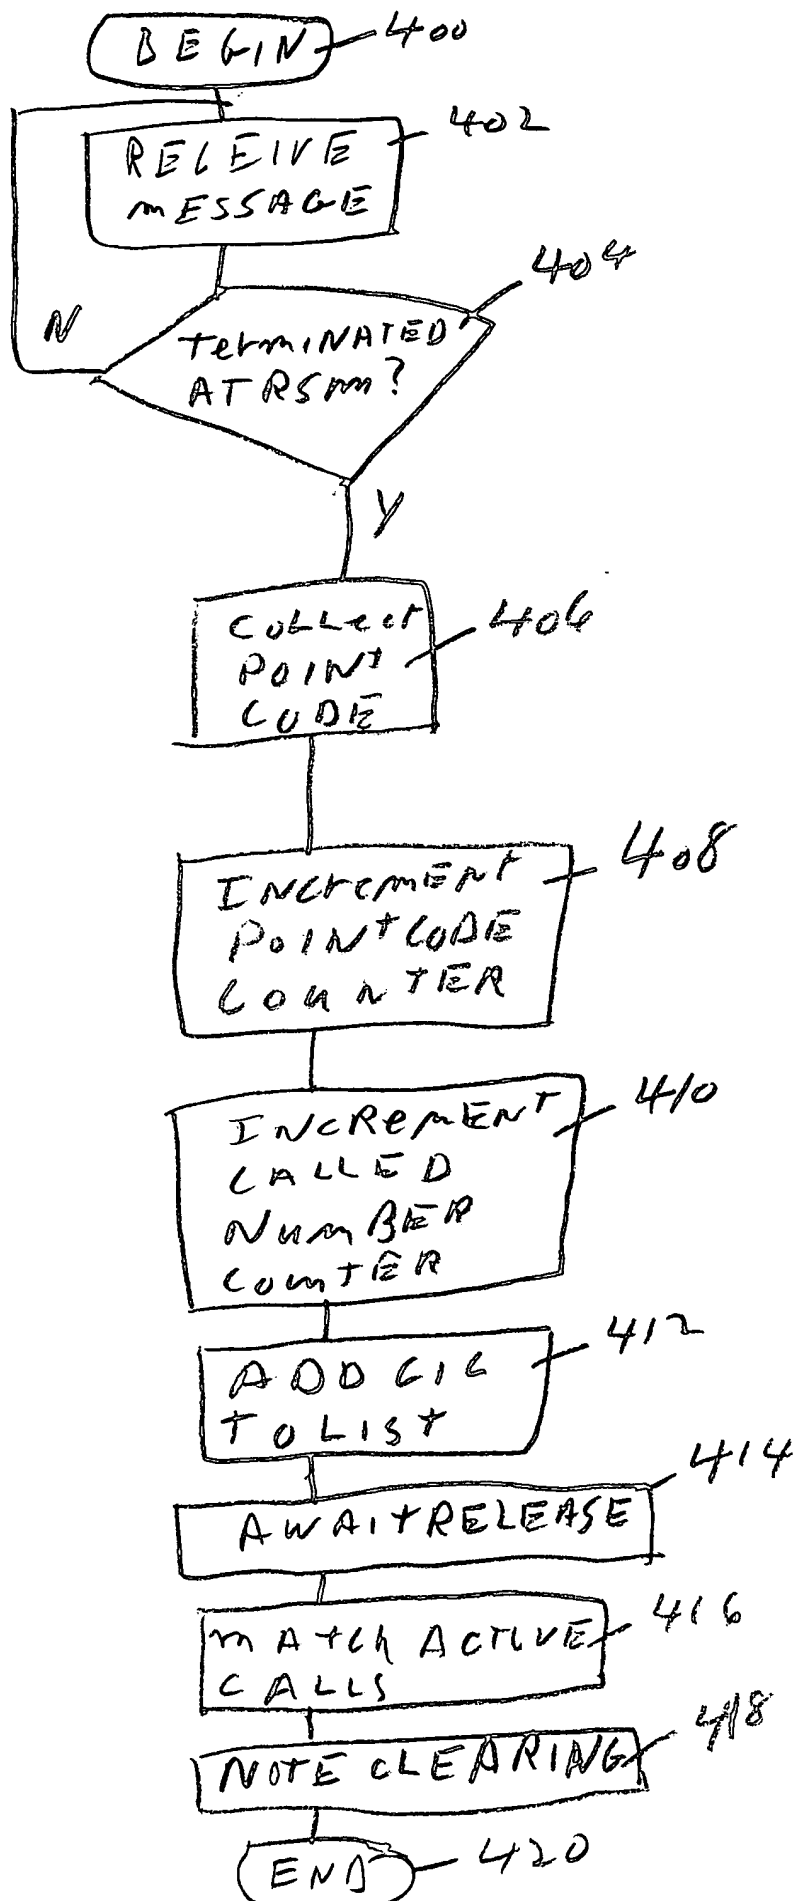 BEGIN
400
RECEIVE
MESSAGE
402
TERMINATED
AT RSM?
404
N
Y
COLLECT
POINT
CODE
406
INCREMENT
POINT CODE
COUNTER
408
INCREMENT
CALLED
NUMBER
COUNTER
410
ADD CIC
TO LIST
412
AWAIT RELEASE
414
MATCH ACTIVE
CALLS
416
NOTE CLEARING
418
END
420